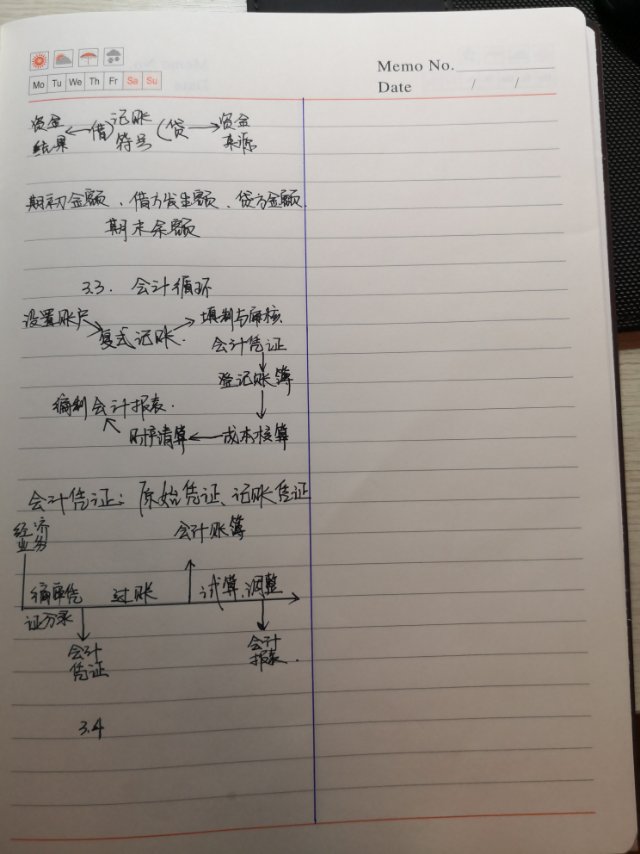 Memo No.
Mo Tu We Th Fr Sa Su
Date / /
资金 ← 借) 记账 (贷 → 资金
结果 符号 来源
期初金额、借方发生额、贷方金额
期末余额
3.3. 会计循环
设置账户 填制与审核
复式记账. 会计凭证
登记账簿
编制会计报表.
财产清算 ← 成本核算
会计凭证: 原始凭证、记账凭证
经济 会计账簿
业务
编审凭 过账 试算、调整
证分录
会计 会计
凭证 报表.
3.4